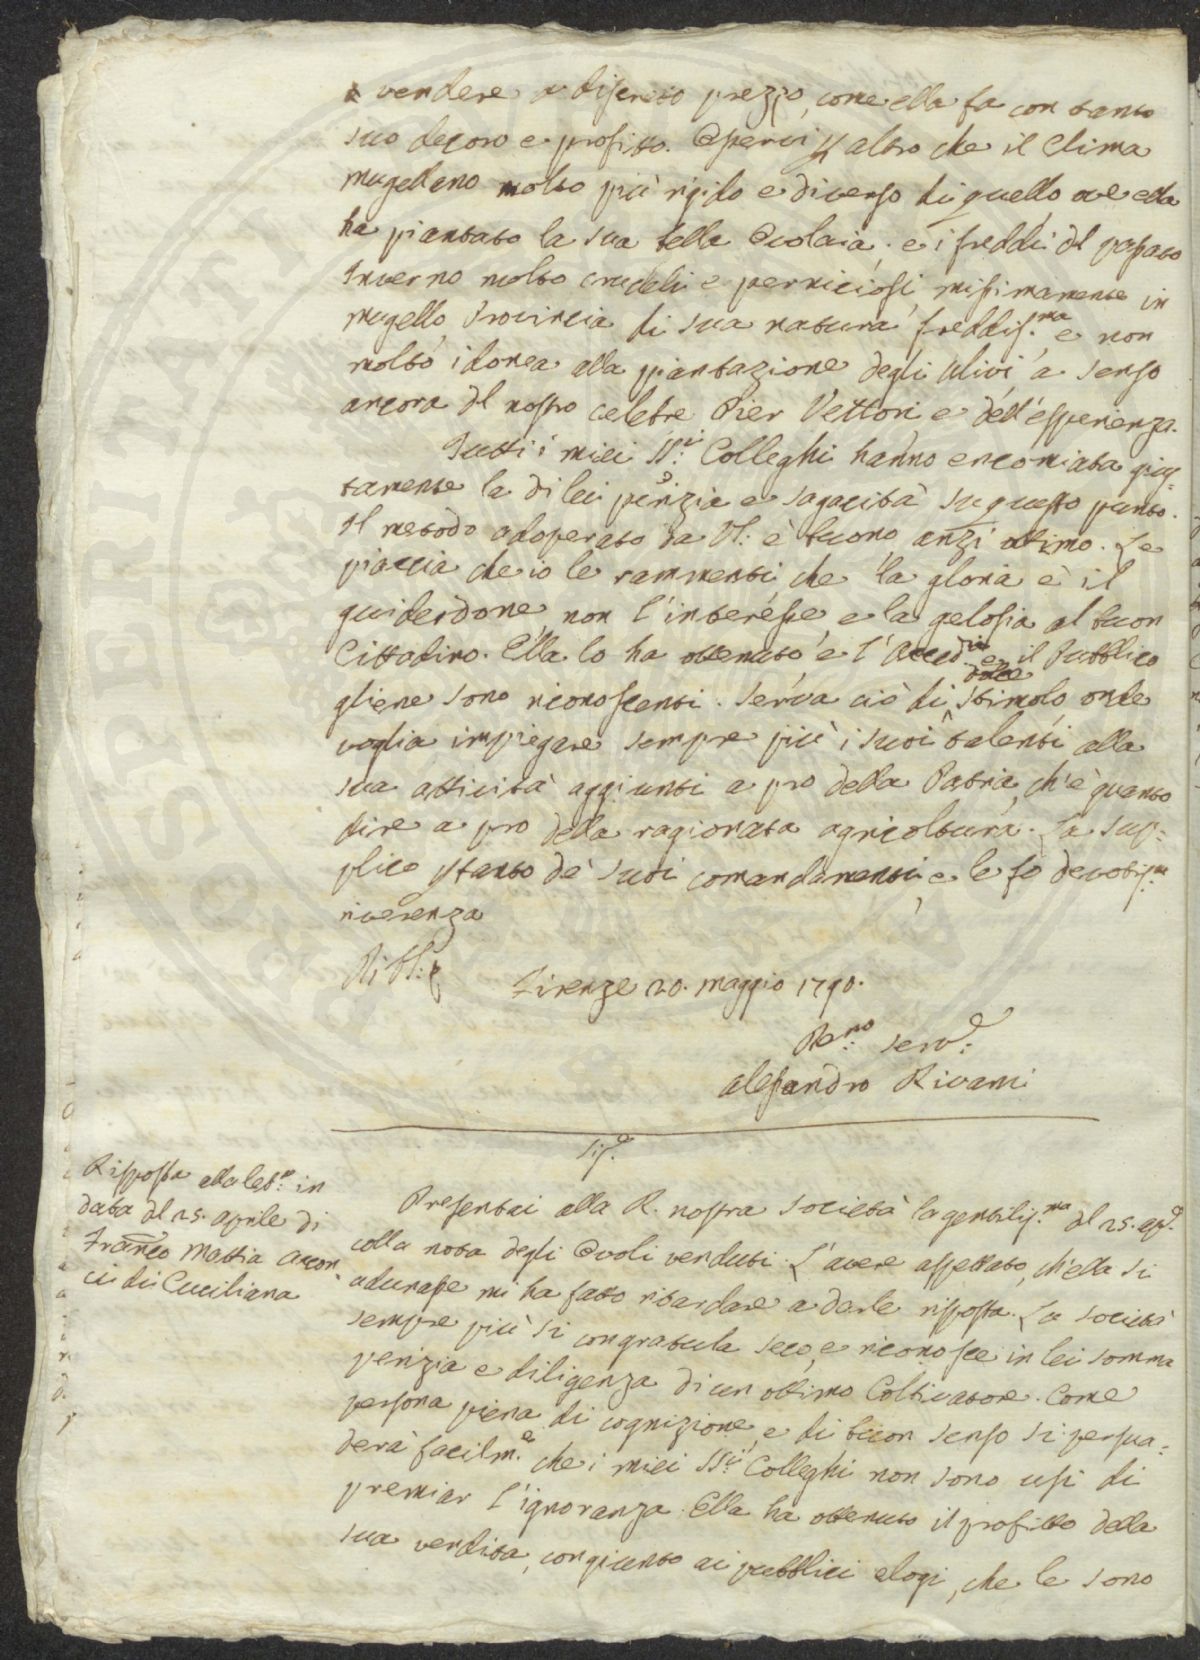 a vendere a discreto prezzo, come ella fa con tanto
suo decoro e profitto. Osservi p altro che il Clima
mugellano molto più rigido e diverso di quello ove ella
ha piantato la sua bella Ovolaia; e i freddi del passato
Inverno molto crudeli e perniciosi, missimamente in
mugello Provincia di sua natura freddiss.ma e non
molto idonea alla piantazione degli Ulivi, a senso
ancora del nostro celebre Pier Vettori e dell'esperienza.
Tutti i miei SS:ri Colleghi hanno encomiata gius=
tamente la di lei perizia e sagacità su questo punto.
Il metodo adoperato da VS: è buono, anzi ottimo. Le
piaccia che io le rammenti che la gloria è il
guiderdone, non l'interesse, e la gelosia al buon
Cittadino. Ella lo ha ottenuto, e l'Accad:ia e il Pubblico
gliene sono riconoscenti. Serva ciò di dolce stimolo, onde
voglia impiegare sempre più i suoi talenti alla
sua attività aggiunti a pro della Patria, ch'è quanto
dire a pro della ragionata agricoltura. La sup=
plico ptanto de' suoi comandamenti, e le fo devotiss:ma
riverenza
Di VS:
Firenze 20. maggio 1790.
Dev:mo serv:e
Alessandro Rivani
Sig.e
Risposta alla lett:a in
data del 25. aprile di
Franco Mattia Arcon
ci di Cuciliana
Presentai alla R. nostra Società la gentilis.ma del 25. ap.e
colla nota degli Ovoli venduti. L'avere aspettato, ch'ella si
adunasse mi ha fatto ritardare a darle risposta. La Società
sempre più si congratula seco, e riconosce in lei somma
perizia e diligenza di un ottimo Coltivatore. Come
persona piena di cognizione, e di buon senso si persua=
derà facilm.e che i miei SS:ri Colleghi non sono usi di
premiar l'ignoranza. Ella ha ottenuto il profitto della
sua vendita, congiunto ai pubblici elogi, che le sono